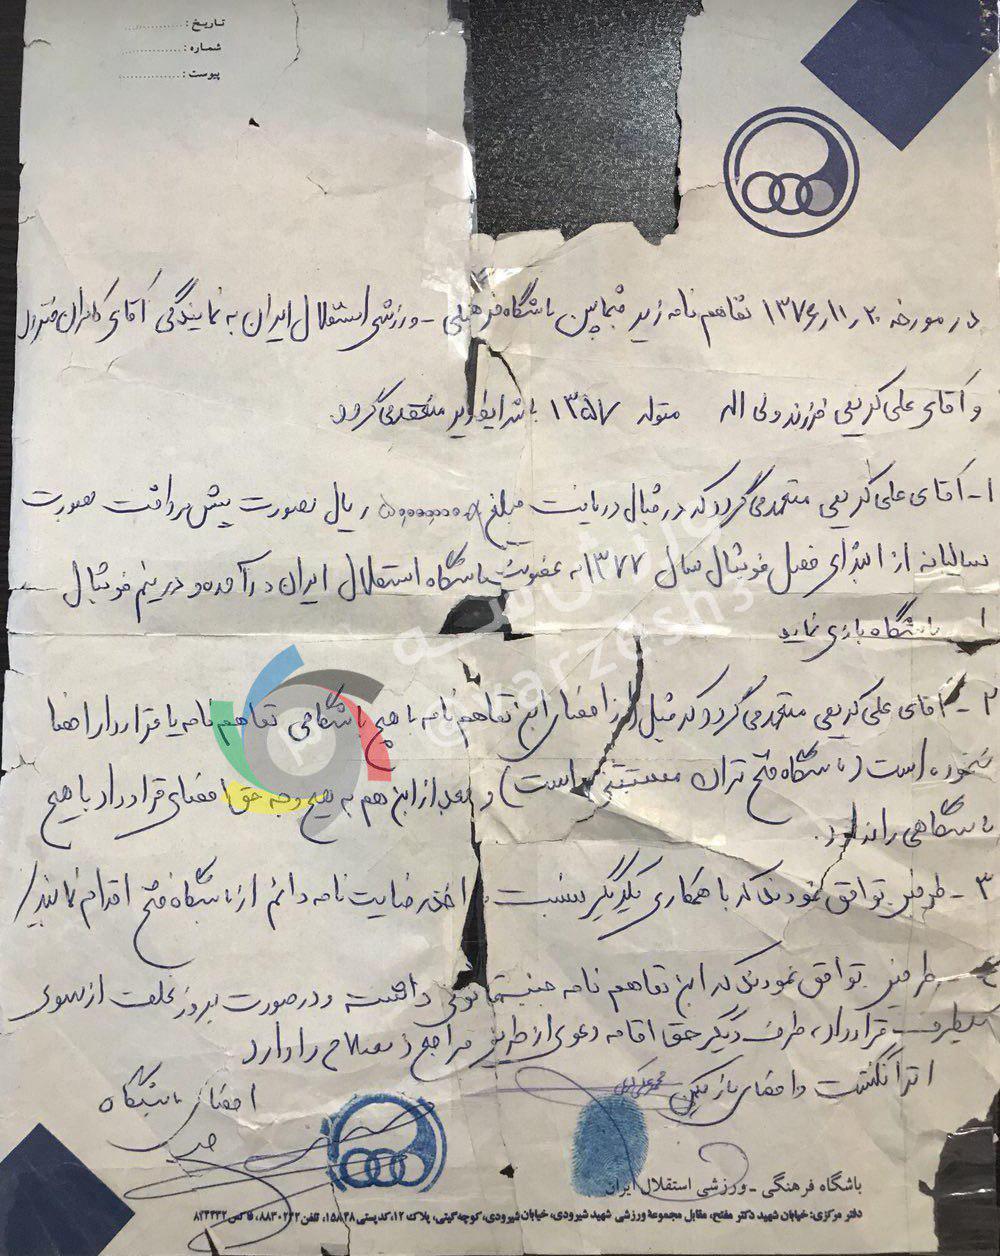 تاریخ :
شماره :
پیوست :
در مورخه ۲۰ر۱۱ر۱۳۷۶ تفاهم نامه زیر فیمابین باشگاه فرهنگی - ورزشی استقلال ایران به نمایندگی آقای کامران
و آقای علی کریمی فرزند ولی اله متولد ۱۳۵۷ با شرایط زیر منعقد می گردد
۱- آقای علی کریمی متعهد می گردد که در قبال دریافت مبلغ ریال بصورت پیش پرداخت بصورت
سالیانه از ابتدای فصل فوتبال سال ۱۳۷۷ به عضویت باشگاه استقلال ایران درآمده و در تیم فوتبال
باشگاه بازی نماید
۲- آقای علی کریمی متعهد می گردد که قبل از امضای این تفاهم نامه با هیچ باشگاهی تفاهم نامه یا قرارداد امضا
ننموده است (باشگاه فتح تهران مستثنی است) و بعد از این هم به هیچ وجه حق امضای قرارداد با هیچ
باشگاهی را ندارد.
۳- طرفین توافق نمودند که با همکاری یکدیگر نسبت به اخذ رضایت نامه دائم از باشگاه فتح اقدام نمایند
۴- طرفین توافق نمودند که این تفاهم نامه جنبه قانونی داشته و در صورت بروز تخلف از سوی
یکطرف قرارداد، طرف دیگر حق اقامه دعوی از طریق مراجع ذیصلاح را دارد
اثر انگشت و امضای بازیکن
امضای باشگاه
ورزش سه
@varzesh3
باشگاه فرهنگی - ورزشی استقلال ایران
دفتر مرکزی: خیابان شهید دکتر مفتح، مقابل مجموعۀ ورزشی شهید شیرودی، خیابان شیرودی، کوچه گیتی، پلاک ۱۲، کدپستی ۱۵۸۳۸، تلفن ۸۸۳۰۲۴۲، فاکس ۸۲۴۳۳۲